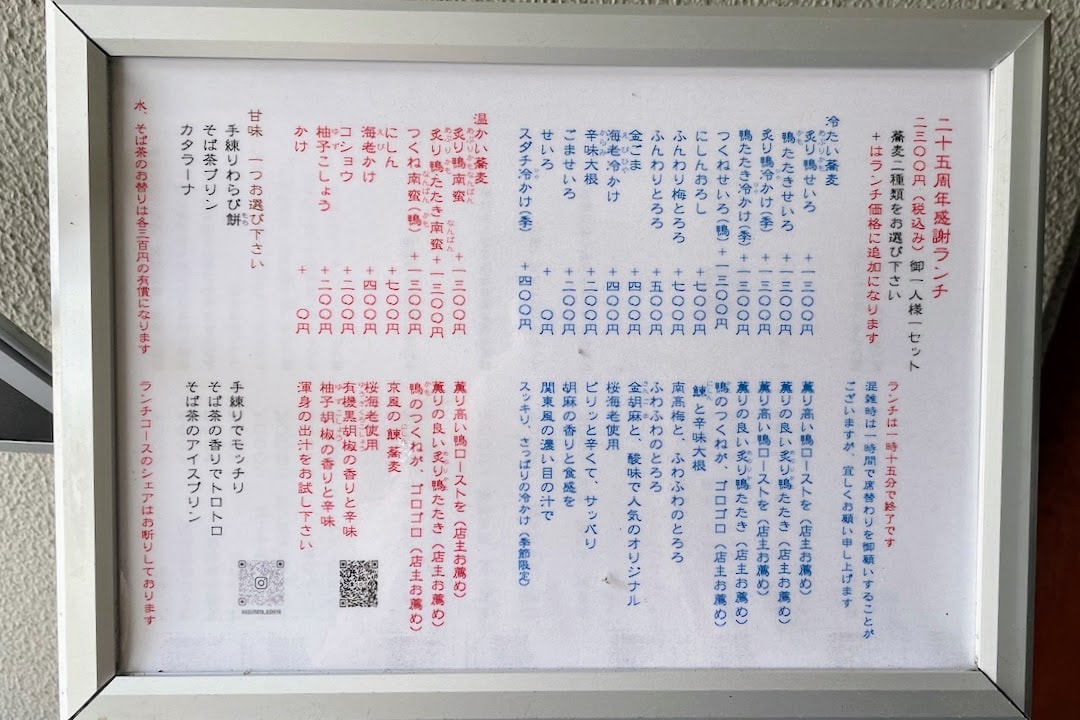 二十五周年感謝ランチ
二三〇〇円（税込み）御一人様一セット
蕎麦二種類をお選び下さい
＋はランチ価格に追加になります
ランチは一時十五分で終了です
混雑時は一時間で席替わりを御願いすることが
ございますが、宜しくお願い申し上げます
冷たい蕎麦
炙り鴨せいろ ＋一三〇〇円 薫り高い鴨ローストを（店主お薦め）
鴨たたきせいろ ＋一三〇〇円 薫りの良い炙り鴨たたき（店主お薦め）
炙り鴨冷かけ（季） ＋一三〇〇円 薫り高い鴨ローストを（店主お薦め）
鴨たたき冷かけ（季） ＋一三〇〇円 薫りの良い炙り鴨たたき（店主お薦め）
つくねせいろ（鴨） ＋一三〇〇円 鴨のつくねが、ゴロゴロ（店主お薦め）
にしんおろし ＋七〇〇円 鰊と辛味大根
ふんわり梅とろろ ＋七〇〇円 南高梅と、ふわふわのとろろ
ふんわりとろろ ＋五〇〇円 ふわふわのとろろ
金ごま ＋四〇〇円 金胡麻と、酸味で人気のオリジナル
海老冷かけ ＋四〇〇円 桜海老使用
辛味大根 ＋二〇〇円 ピリッと辛くて、サッパリ
ごませいろ ＋二〇〇円 胡麻の香りと食感を
せいろ ＋〇円 関東風の濃い目の汁で
スダチ冷かけ（季） ＋四〇〇円 スッキリ、さっぱりの冷かけ（季節限定）
温かい蕎麦
炙り鴨南蛮 ＋一三〇〇円 薫り高い鴨ローストを（店主お薦め）
炙り鴨たたき南蛮 ＋一三〇〇円 薫りの良い炙り鴨たたき（店主お薦め）
つくね南蛮（鴨） ＋一三〇〇円 鴨のつくねが、ゴロゴロ（店主お薦め）
にしん ＋七〇〇円 京風の鰊蕎麦
海老かけ ＋四〇〇円 桜海老使用
コショウ ＋二〇〇円 有機黒胡椒の香りと辛味
柚子こしょう ＋二〇〇円 柚子胡椒の香りと辛味
かけ ＋〇円 渾身の出汁をお試し下さい
甘味　一つお選び下さい
手練りわらび餅 手練りでモッチリ
そば茶プリン そば茶の香りでトロトロ
カタラーナ そば茶のアイスプリン
水、そば茶のお替りは各三百円の有償になります
ランチコースのシェアはお断りしております